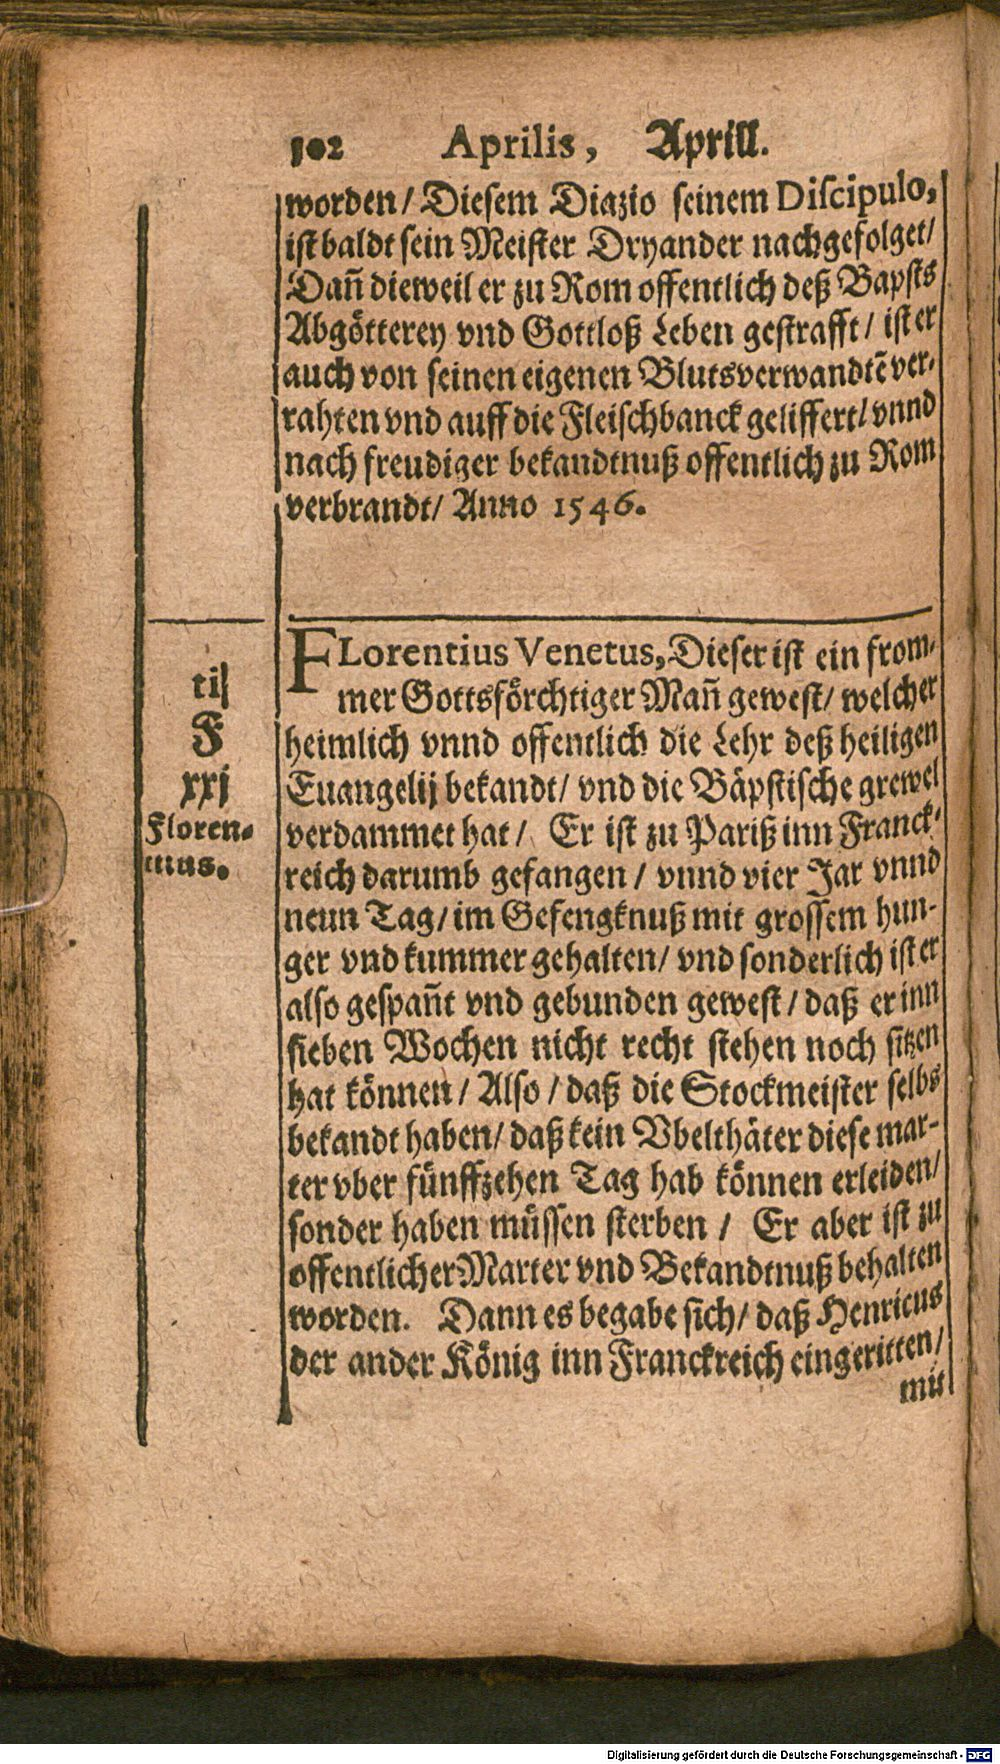 102 Aprilis, Aprill.
worden/ Diesem Diazio seinem Discipulo,
ist baldt sein Meister Dryander nachgefolget/
Dañ dieweil er zu Rom offentlich deß Bapsts
Abgötterey vnd Gottloß Leben gestrafft/ ist er
auch von seinen eigenen Blutsverwandtē ver-
rahten vnd auff die Fleischbanck geliffert/ vnnd
nach freudiger bekandtnuß offentlich zu Rom
verbrandt/ Anno 1546.
til
F
xxj
Floren-
tius.
FLorentius Venetus, Dieser ist ein from-
mer Gottsförchtiger Mañ gewest/ welcher
heimlich vnnd offentlich die Lehr deß heiligen
Euangelij bekandt/ vnd die Bäpstische grewel
verdammet hat/ Er ist zu Pariß inn Franck-
reich darumb gefangen/ vnnd vier Jar vnnd
neun Tag/ im Gefengknuß mit grossem hun-
ger vnd kummer gehalten/ vnd sonderlich ist er
also gespañt vnd gebunden gewest/ daß er inn
sieben Wochen nicht recht stehen noch sitzen
hat können/ Also/ daß die Stockmeister selbs
bekandt haben/ daß kein Vbelthäter diese mar-
ter vber fünffzehen Tag hab können erleiden/
sonder haben müssen sterben/ Er aber ist zu
offentlicher Marter vnd Bekandtnuß behalten
worden. Dann es begabe sich/ daß Henricus
der ander König inn Franckreich eingeritten/
mit
Digitalisierung gefördert durch die Deutsche Forschungsgemeinschaft - DFG